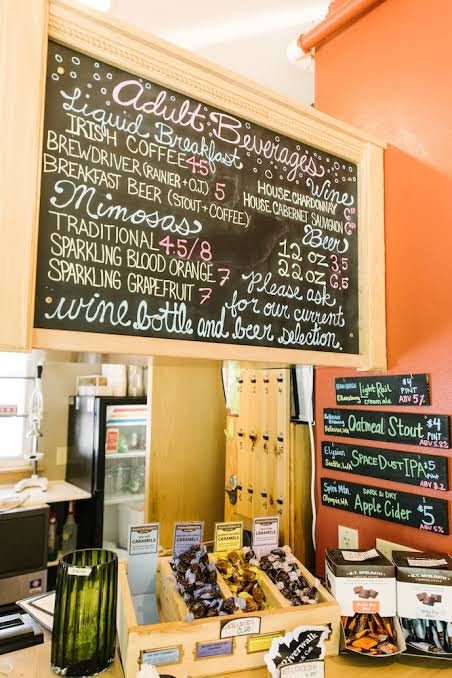 Adult Beverages
Liquid Breakfast
IRISH COFFEE 4.5
BREWDRIVER (RAINIER + O.J.) 5
BREAKFAST BEER (STOUT + COFFEE)
Mimosas
TRADITIONAL 4.5/8
SPARKLING BLOOD ORANGE 7
SPARKLING GRAPEFRUIT 7
Wine
HOUSE CHARDONNAY 6
HOUSE CABERNET SAUVIGNON 6
Beer
12 OZ 3.5
22 OZ 6.5
Please ask
for our current
wine bottle and beer selection.
Light Rail
Ellensburg
cream ale
$4
PINT
ABV 5%
Bellevue Brewing
Bellevue, WA
Oatmeal Stout
$4
PINT
Elysian
Seattle, WA
SPACE DUST IPA
$5
PINT
ABV 8.2
Spire Mtn.
Olympia, WA
DARK & DRY
Apple Cider
$5
ABV 5%
CARAMELS
CARAMELS
CARAMELS
CARAMELS
Riverwalk